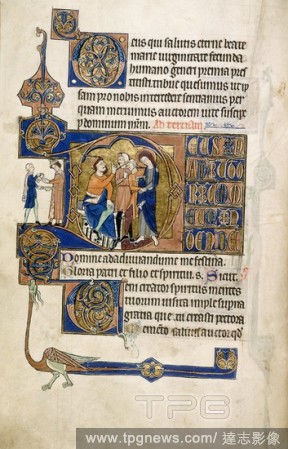 Deus qui salutis eterne beate
marie virginitate fecunda
humano generi premia pre
stitisti tribue quesumus ut ip
sam pro nobis intercedere sentiamus per
quam meruimus auctorem vite suscipe
dominum nrm. Ad terciam
Deus in
adiutori
Domine ad adiuvandum me festina.
Gloria patri et filio et spiritui. s. Sicut
Veni creator spiritus mentes
tuorum visita imple superna
gratia que tu creasti pectora
Memento salutis auctor qd
TPG
www.tpgnews.com / 達志影像